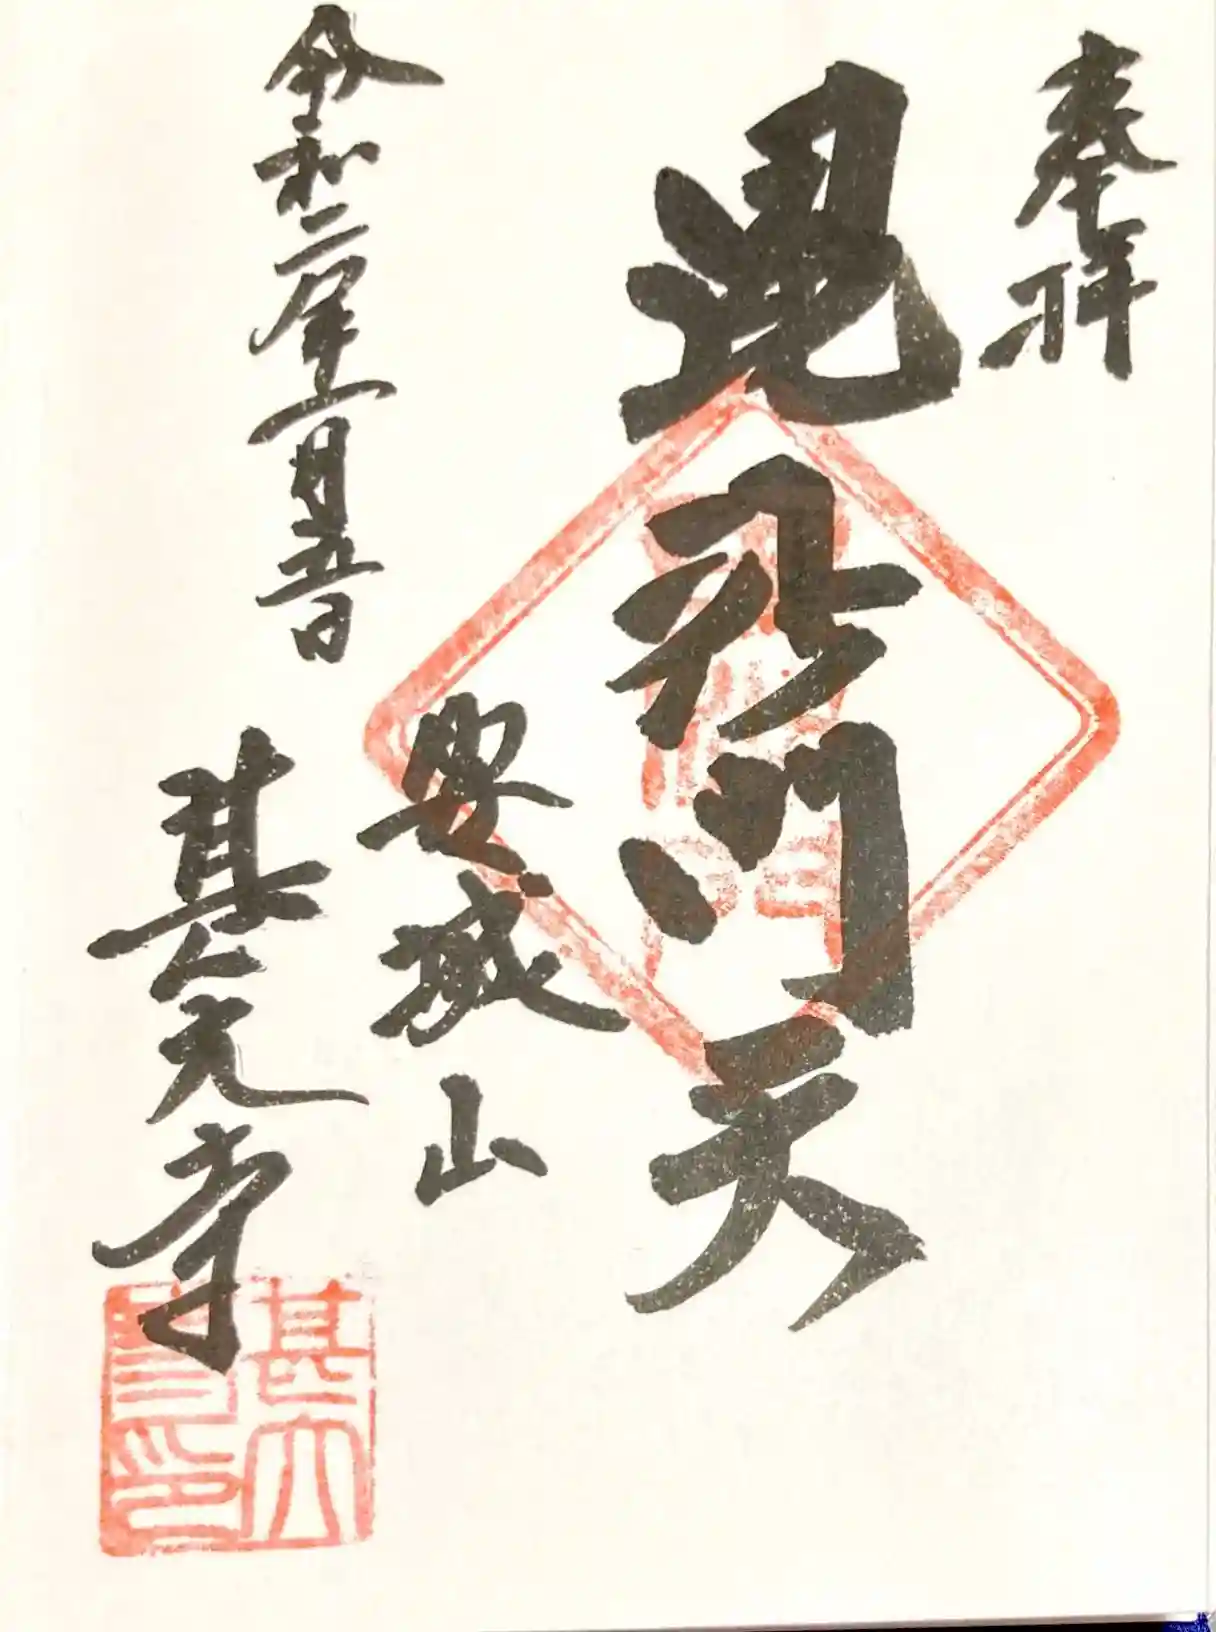 奉拝
毘沙門天
安城山
甚大寺
令和二年
甚大寺印